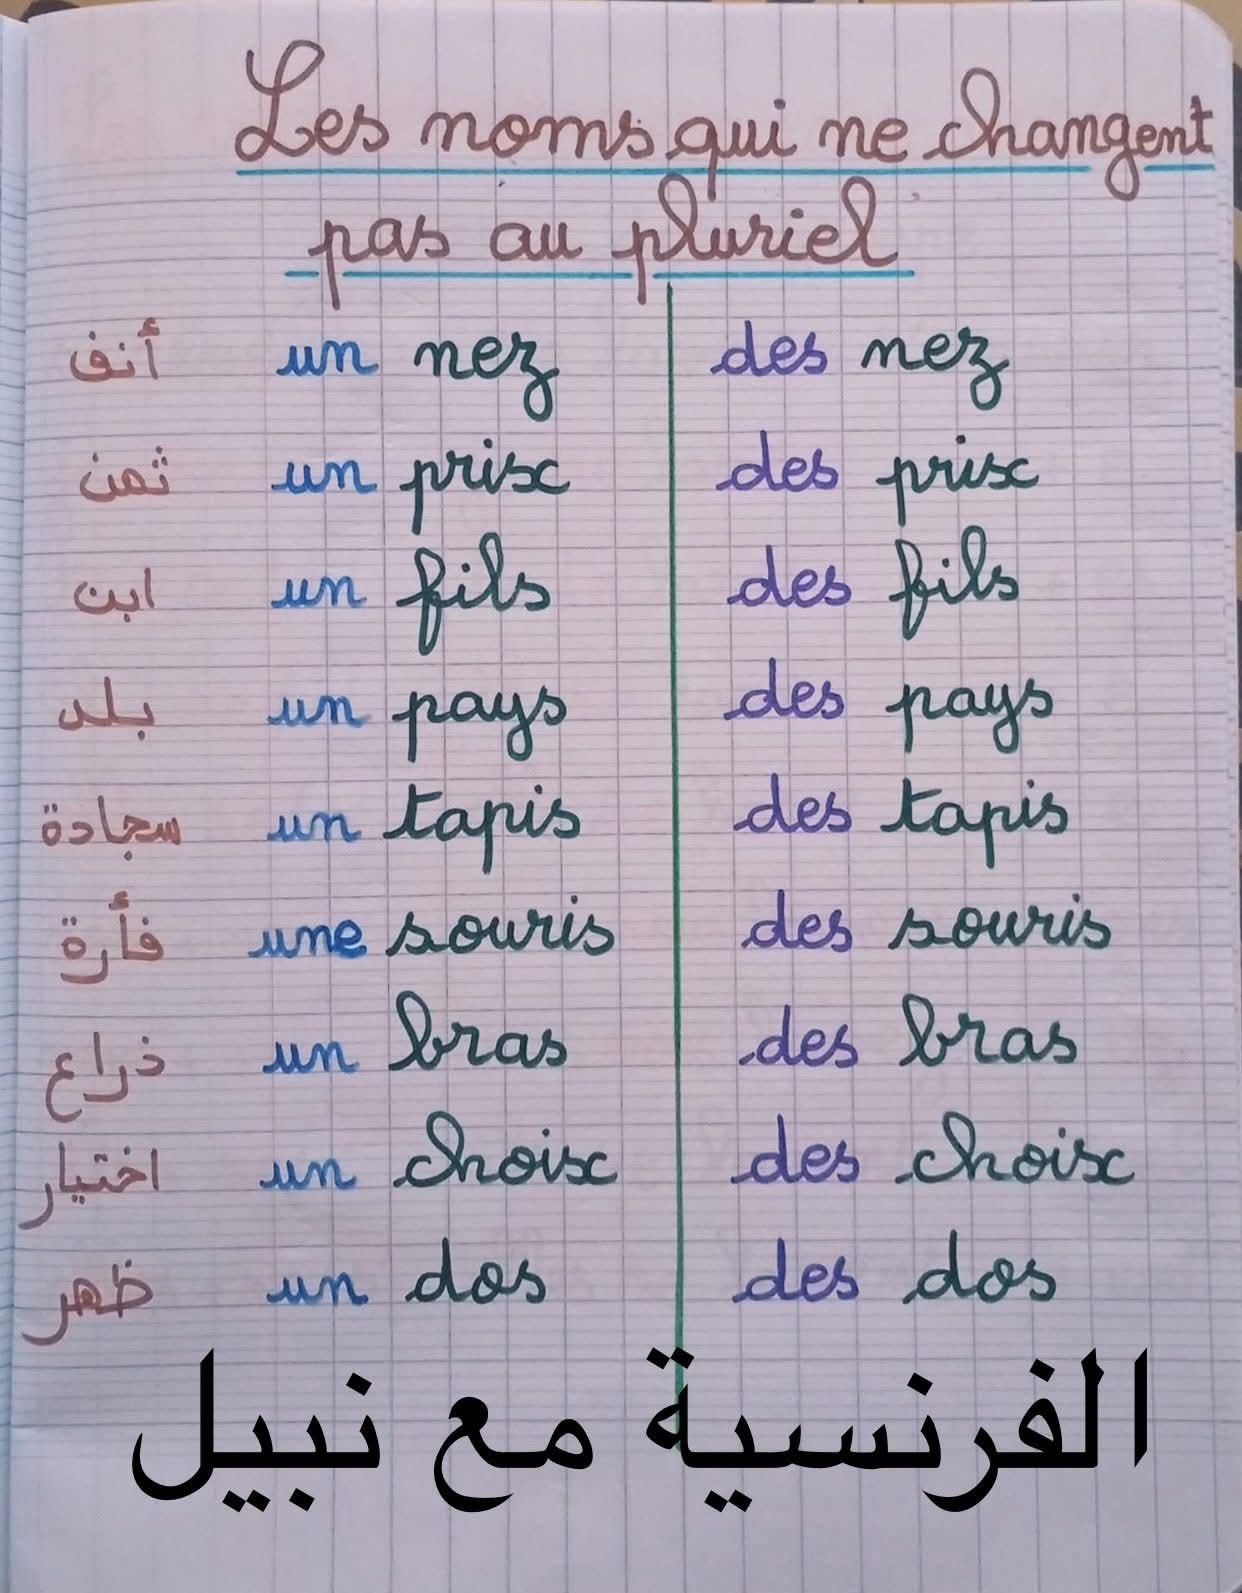 Les noms qui ne changent
pas au pluriel
أنف un nez des nez
ثمن un prix des prix
ابن un fils des fils
بلد un pays des pays
سجادة un tapis des tapis
فأرة une souris des souris
ذراع un bras des bras
اختيار un choix des choix
ظهر un dos des dos
الفرنسية مع نبيل